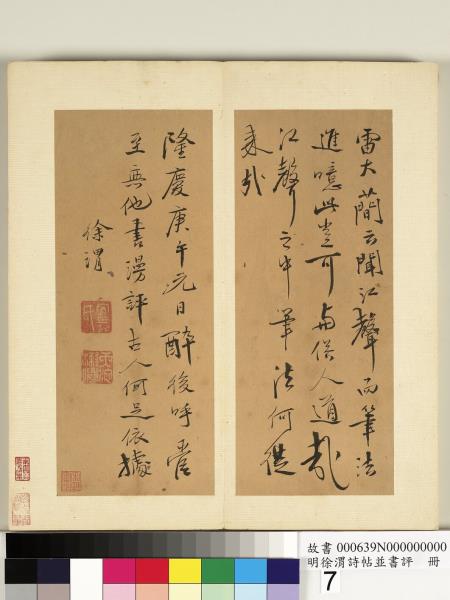 雷大簡云聞江聲而筆法
進噫此豈可與俗人道哉
江聲之中筆法何從
來哉
隆慶庚午元日醉後呼管
至無他書漫評古人何足依據
徐渭
故書 000639N000000000
明徐渭詩帖並書評 冊
7